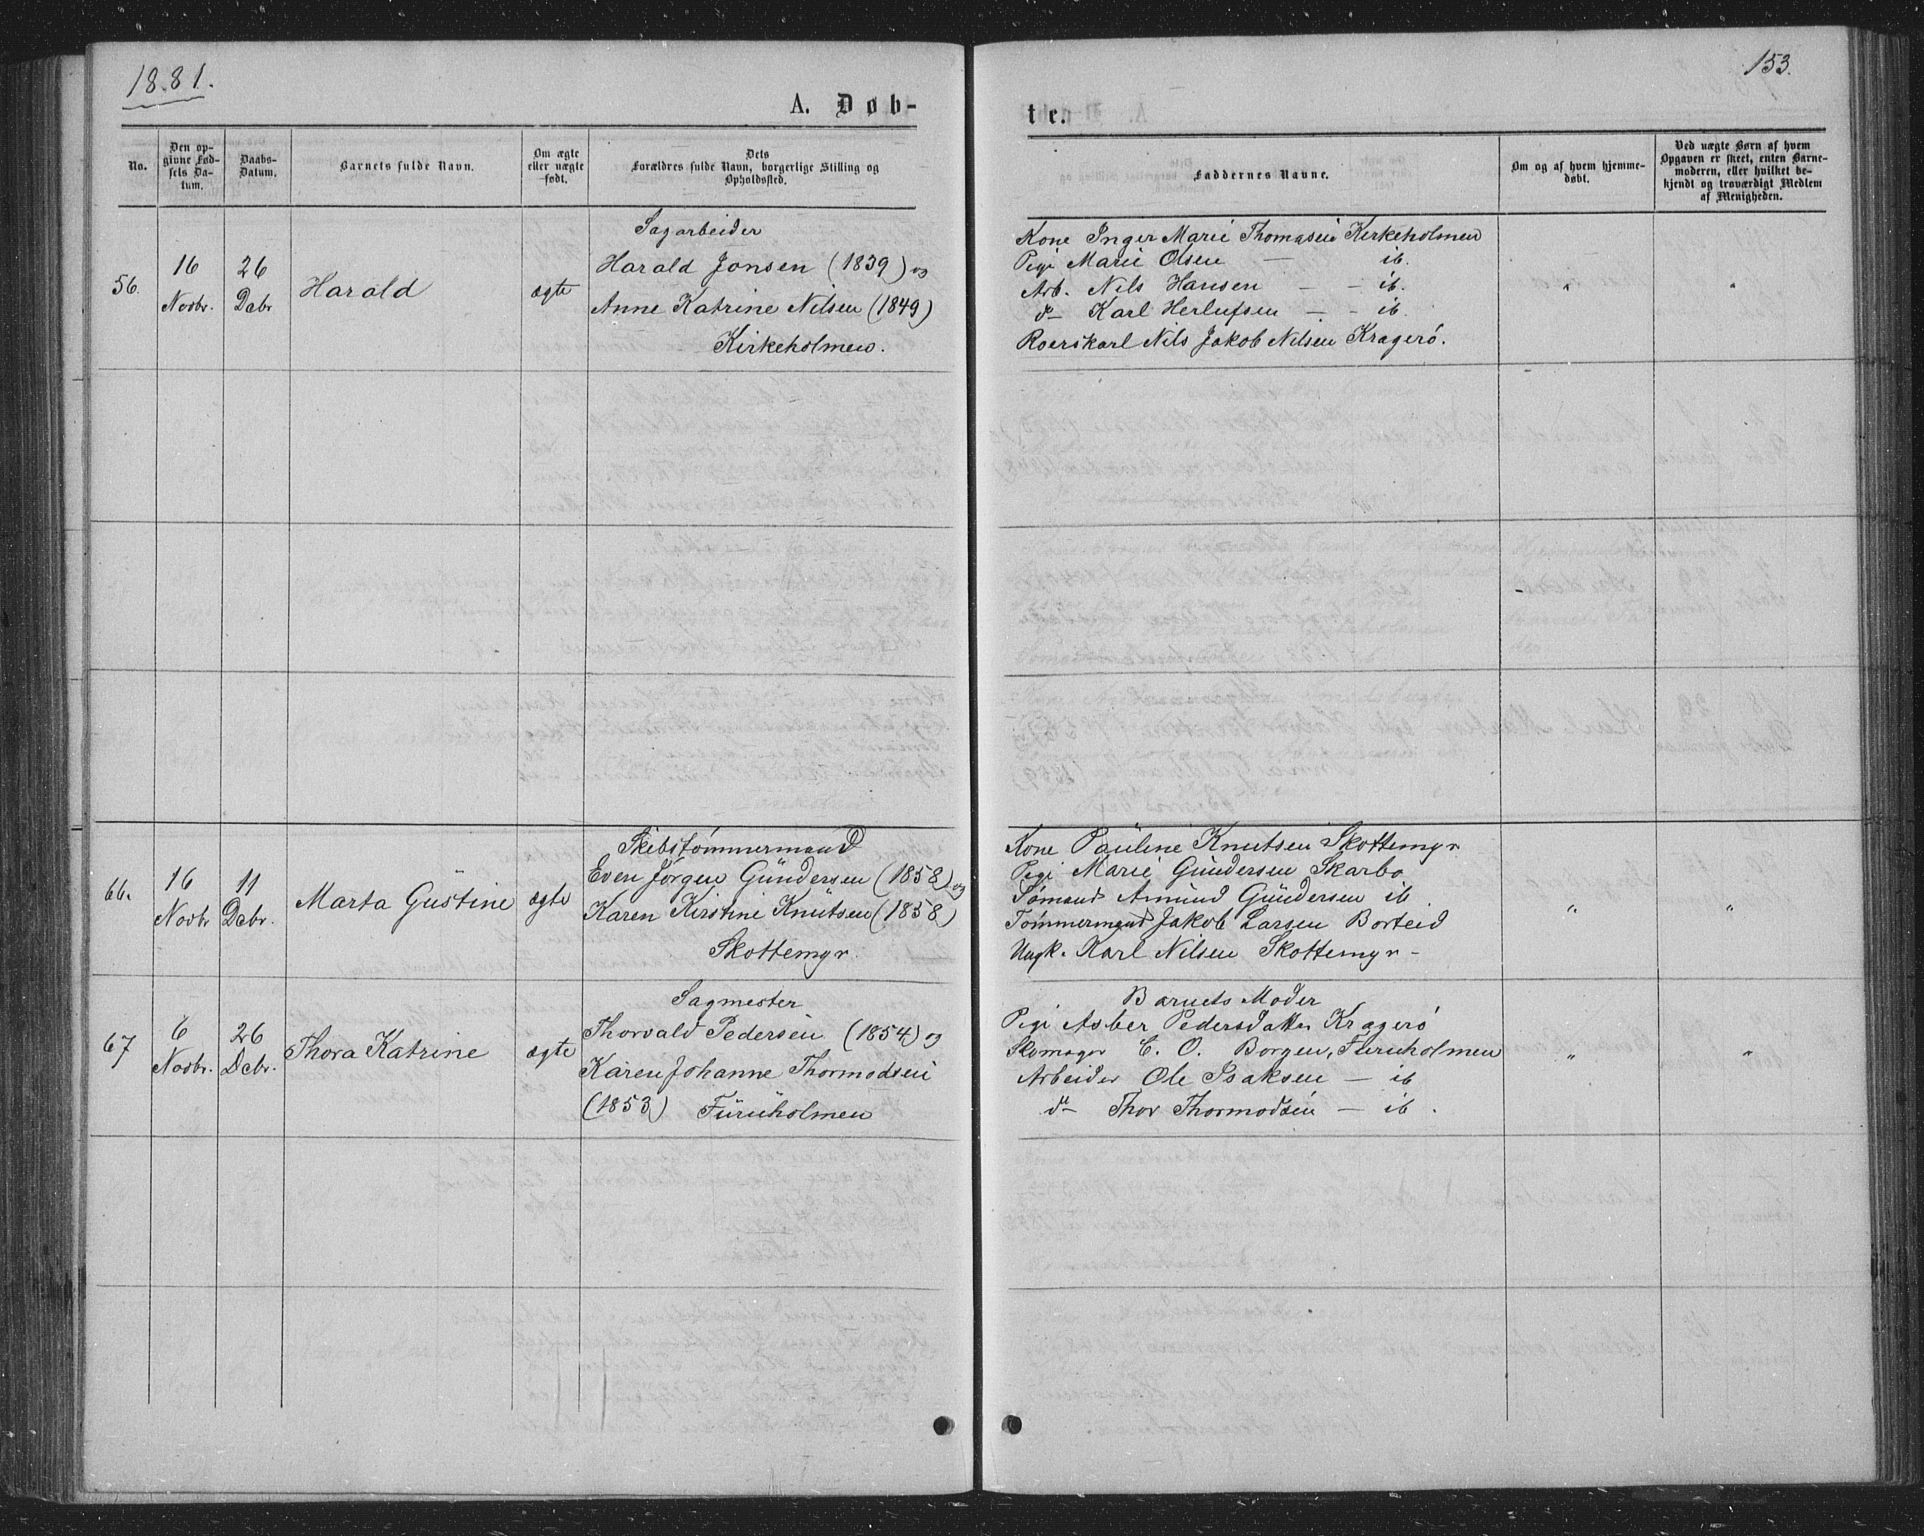 1881.
153.
A. Døb-
te.
No.
Den op-
givne Fød-
sels Da-
tum.
Daabs-
Datum.
Barnets fulde Navn.
Om ægte
eller uægte
født.
Dets
Forældres fulde Navn, borgerlige Stilling og
Opholdssted.
Faddernes Navne.
Om og af hvem hjemme-
døbt.
Ved uægte Børn af hvem
Opgaven er skeet, enten Barne-
moderen, eller hvilket be-
kjendt og troværdigt Medlem
af Menigheden.
56.
16
Novbr.
26
Debr
Harald
ægte
Sagarbeider
Harald Jonsen (1839) og
Anne Katrine Nilsen (1849)
Kirkeholmen.
Kone Inger Marie Thomasen Kirkeholmen
Pige Marie Olsen — ib.
Arb. Nils Hansen — - ib.
do Karl Herlufsen — - ib.
Roerskarl Nils Jakob Nilsen Kragerø.
"
"
66.
16
Novbr
11
Debr.
Marta Gustine
ægte
Skibstømmermand
Even Jørgen Gundersen (1858) og
Karen Kirstine Knutsen (1858)
Skottemyr.
Kone Pauline Knutsen Skottemyr
Pige Marie Gundersen Skarbo
Sømand Amund Gundersen ib.
Tømmermand Jakob Larsen Borteid
Ungk. Karl Nilsen Skottemyr -
"
"
67
6
Novbr.
26
Debr.
Thora Katrine
ægte
Sagmester
Thorvald Pedersen (1854) og
Karen Johanne Thormodsen
(1853) Furuholmen
Barnets Moder
Pige Asber Pedersdatter Kragerø
Skomager C. O. Borgen, Furuholmen
Arbeider Ole Isaksen — ib
do Thor Thormodsen — ib.
"
"